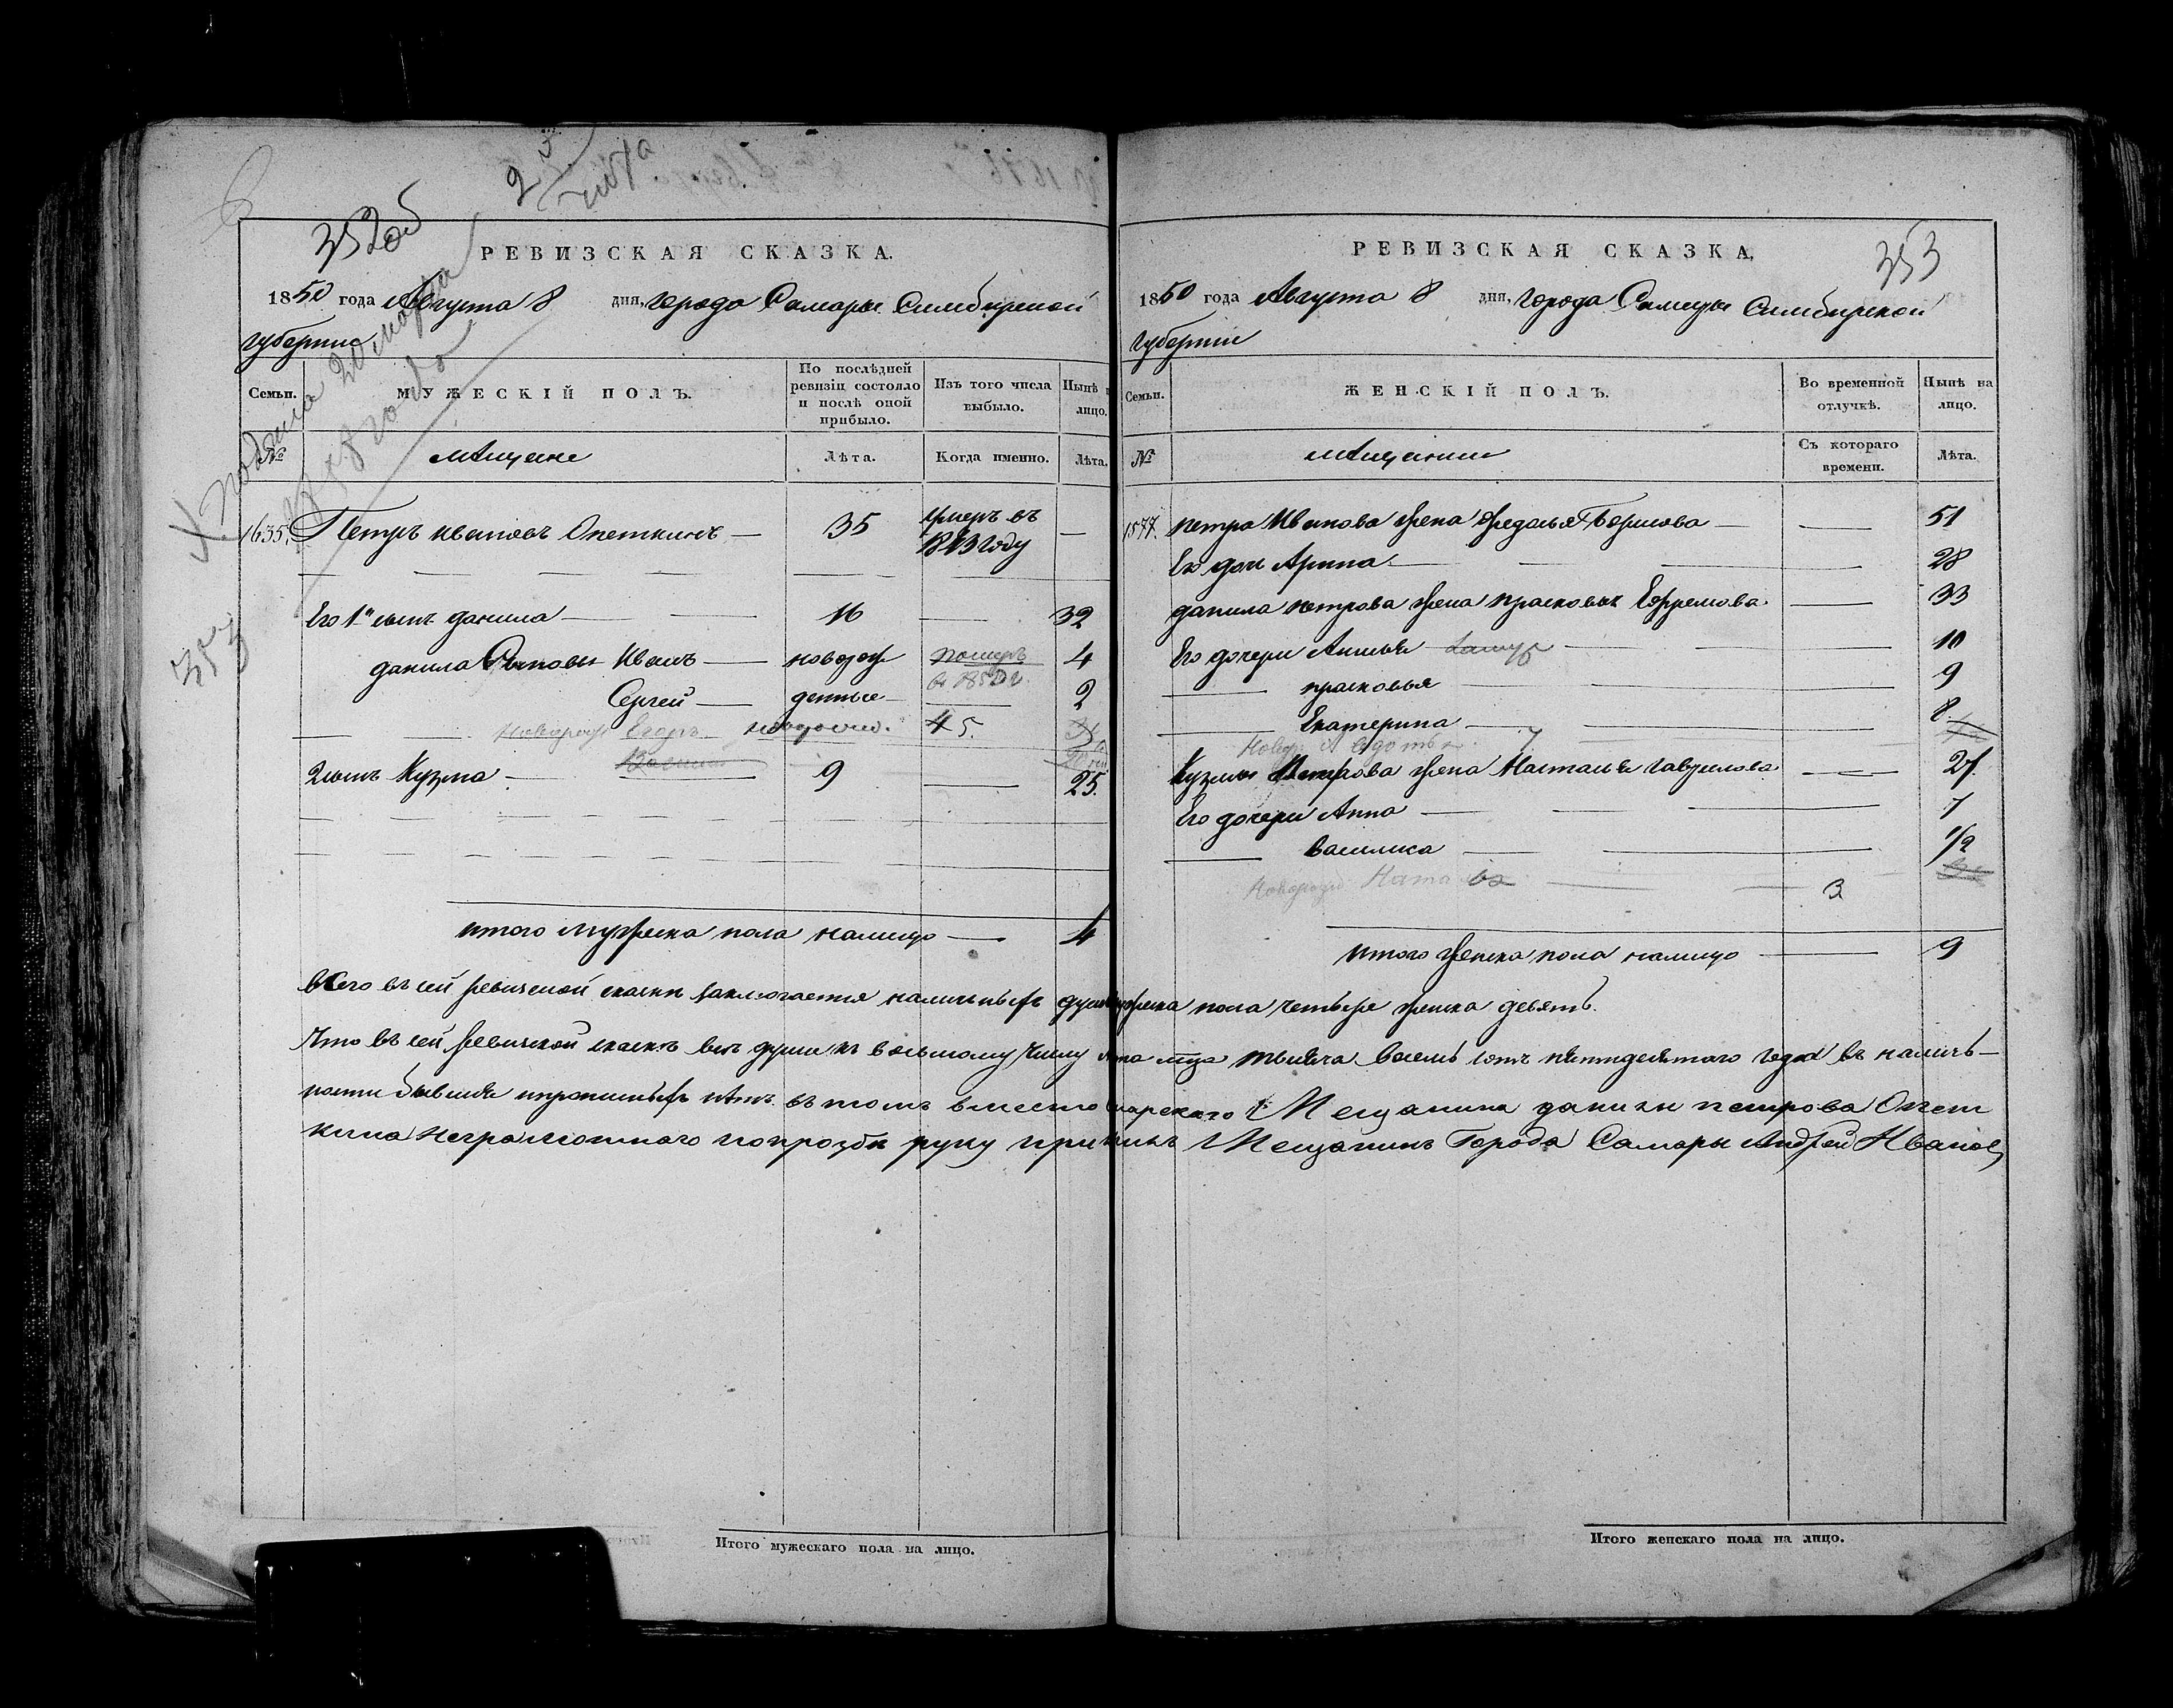 352об
РЕВИЗСКАЯ СКАЗКА.
1850 года Августа 8 дня, города Самары Симбирской
губернии
Семьи.
МУЖЕСКІЙ ПОЛЪ.
По послѣдней ревизіи состояло и послѣ оной прибыло.
Изъ того числа выбыло.
Нынѣ на лицо.
№
мѣщане
Лѣта.
Когда именно.
Лѣта.
1635. Петръ Ивановъ Опеткинъ — 35 умеръ въ —
1843 году
Его 1й сынъ данила — 16 — 32
данила Сыновья Иванъ — новорож померъ 4
Сергей — денные — 2
новорож Егоръ 5.
2 сынъ Кузма — 9 — 25.
итого мужеска пола налицо — 4
353
РЕВИЗСКАЯ СКАЗКА,
1850 года Августа 8 дня, города Самары Симбирской
губернии
Семьи.
ЖЕНСКІЙ ПОЛЪ.
Во временной отлучкѣ.
Нынѣ на лицо.
№
мѣщанки
Съ котораго времени.
Лѣта.
1577. петра Иванова жена Борисова — — 51
Его дочь Арина — 28
данила петрова жена прасковья Ефремова — 33
Его дочери Анисья — 10
— прасковья — 9
— Екатерина — 8
Новор 7
Кузмы Петрова жена Настасья гаврилова — 27
Его дочери Анна — 7
— василиса — 1/2
Новорож 3
итого женска пола налицо — 9
всего въ сей ревиской сказки заключается наличныхъ душ мужеска пола четыре женска девять.
Что въ сей ревиской сказкѣ всѣ души къ восьмому числу мца тысяча восемь сотъ пятидесятого года въ налич-
ности бывшия и прописныхъ нѣтъ въ томъ вместо Самарскаго Мещанина данилы петрова Опет
кина неграмотнаго попрозбѣ руку приложилъ Мещанинъ Города Самары Андрей Ивановъ
Итого мужескаго пола на лицо.
Итого женскаго пола на лицо.
353